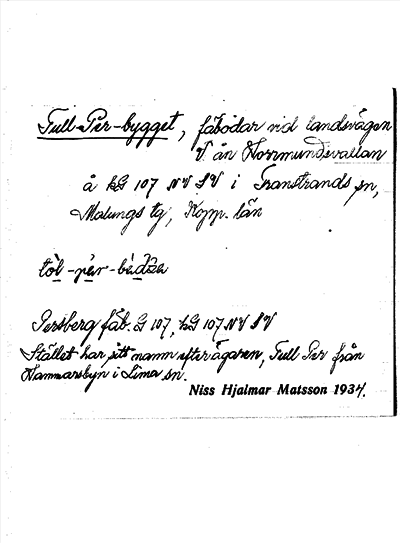 Tull-Per-bygget, fäbodar vid landsvägen
V. ån Horrmundsvallan
å kG 107 NV SV i Transtrands sn,
Malungs tg, Kopp. län
tòl-pèr-
Persberg fäb. G 107, kG 107 NV SV
Stället har sitt namn efter ägaren, Tull Per från
Hammarsbyn i Lima sn.
Niss Hjalmar Matsson 1934.